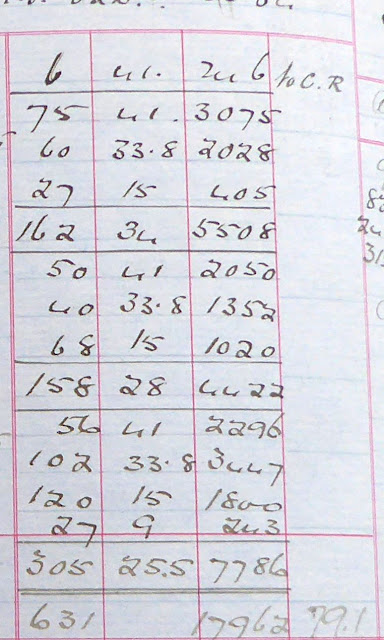 6 41. 246 to C.R
75 41. 3075
60 33.8 2028
27 15 405
162 34 5508
50 41 2050
40 33.8 1352
68 15 1020
158 28 4422
56 41 2296
102 33.8 3447
120 15 1800
27 9 243
305 25.5 7786
631 17962 79.1